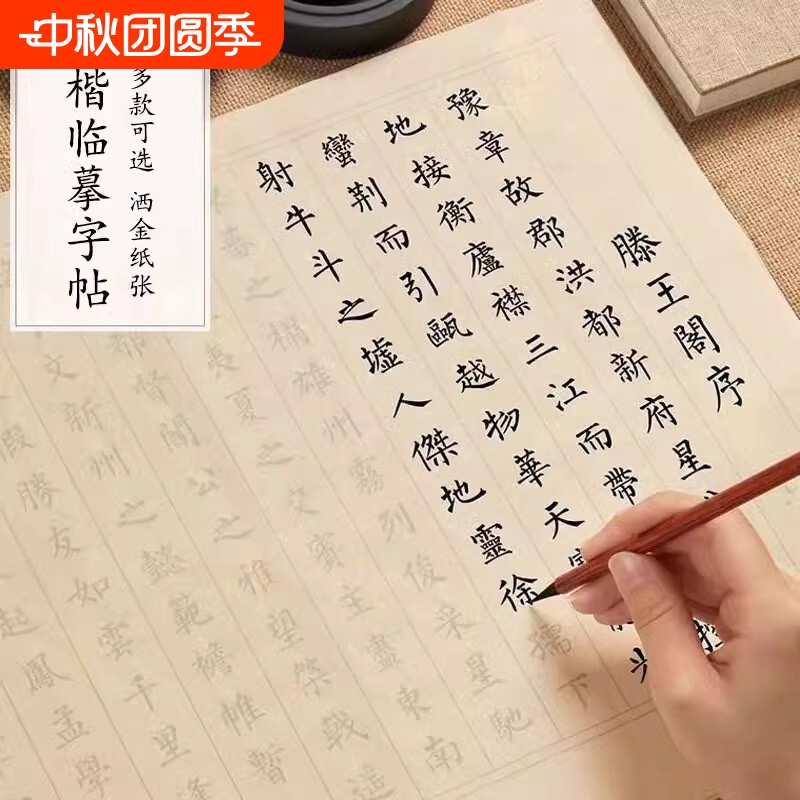 中秋团圆季
多款可选 洒金纸张
楷临摹字帖
滕王閣序
豫章故郡洪都新府星
地接衡廬襟三江而帶控
蠻荆而引甌越物華天光
射牛斗之墟人傑地靈徐孺下
蕃之榻雄州霧列俊采星馳
夷夏之交賓主盡東南
都督閻公之雅望棨戟遙
文新州之懿範襜帷暫
假勝友如雲千里逢
起鳳孟學